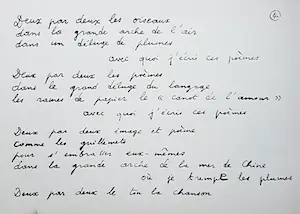 6.
Deux par deux les oiseaux
dans la grande arche de l'air
dans un déluge de plumes
avec quoi j'écris ces poèmes
Deux par deux les poèmes
dans le grand déluge du langage
les rames de papier le « canot de l'amour »
avec quoi j'écris ces poèmes
Deux par deux image et poème
comme les guillemets
pour s'embrasser eux-mêmes
dans la grande arche de la mer de Chine
où je trempe les plumes
Deux par deux le ton la chanson